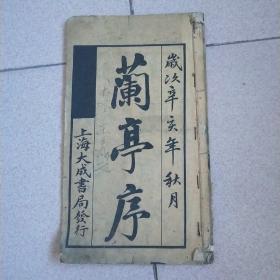 歲次辛亥年 秋月
蘭亭序
上海大成書局發行